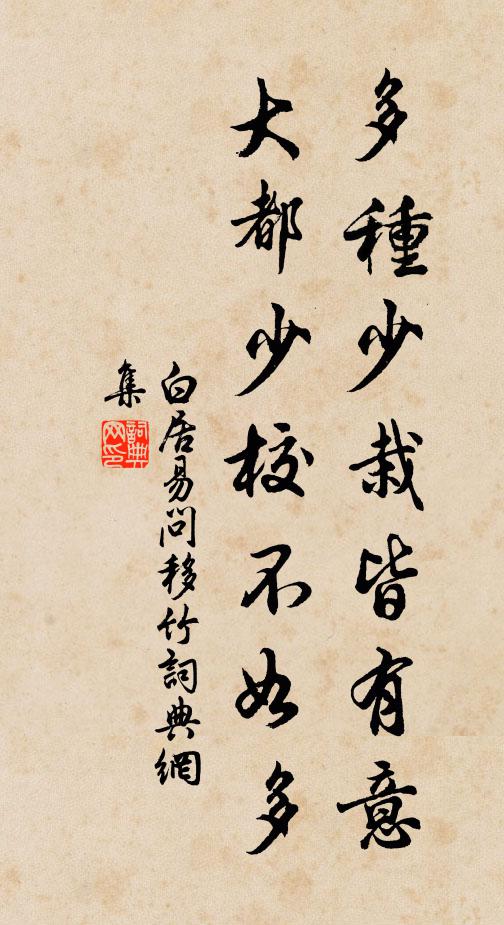 多種少栽皆有意
大都少校不如多
白居易問移竹詞典網
集
詞典网印